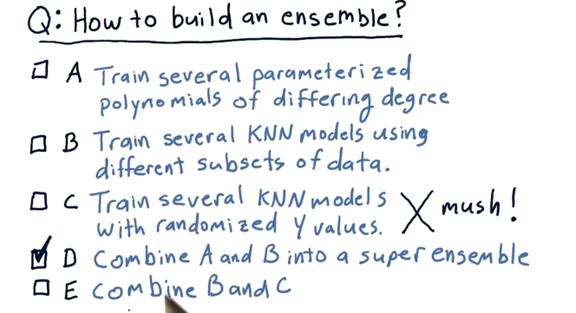 Q: How to build an ensemble?
A Train several parameterized
polynomials of differing degree
B Train several KNN models using
different subsets of data.
C Train several KNN models
with randomized Y values. X mush!
D Combine A and B into a super ensemble
E Combine B and C